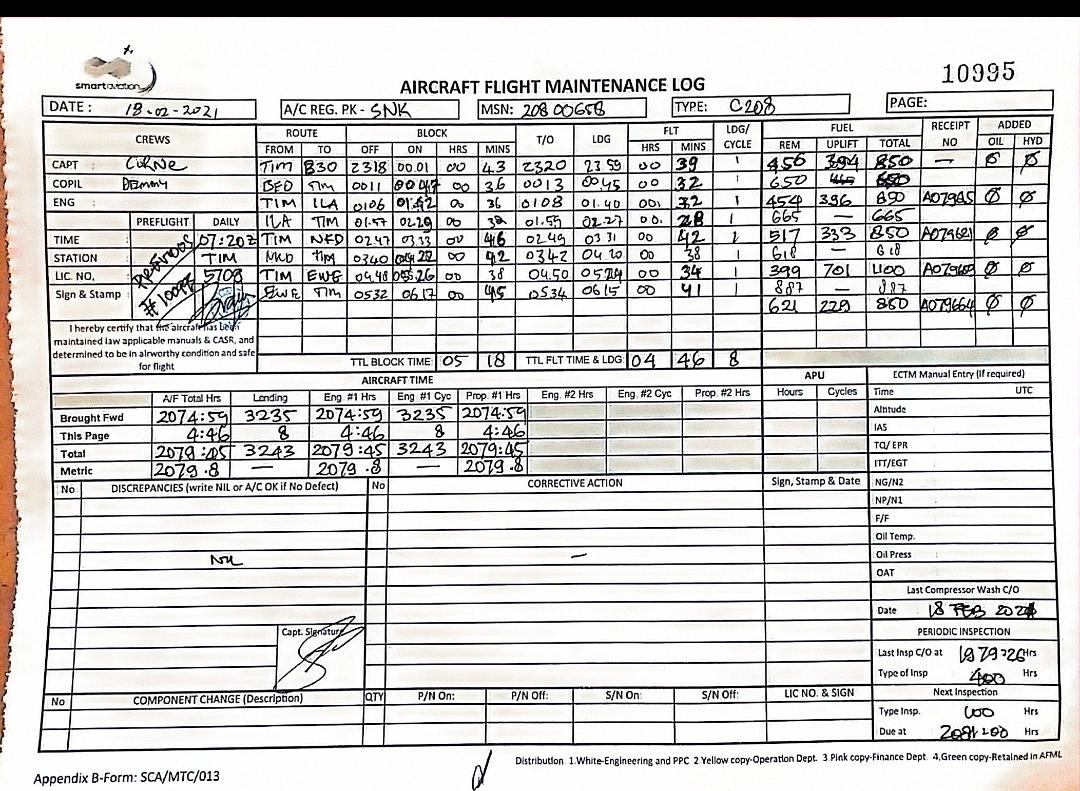 smartaviation
AIRCRAFT FLIGHT MAINTENANCE LOG
10995
DATE : 18-02-2021 A/C REG. PK - SNK MSN: 208 00658 TYPE: C208 PAGE:
CREWS ROUTE BLOCK T/O LDG FLT LDG/ CYCLE FUEL RECEIPT NO ADDED
FROM TO OFF ON HRS MINS HRS MINS REM UPLIFT TOTAL OIL HYD
CAPT : TIM B30 2318 00.01 00 43 2320 23 59 00 39 1 456 394 850 — Ø Ø
COPIL : TIM 0011 00 47 00 36 0013 00 45 00 32 1 650
ENG : TIM ILA 0106 01.42 00 36 0108 01.40 00 32 1 454 396 850 Ø Ø
PREFLIGHT DAILY ILA TIM 01.57 02.29 00 32 01.59 02.27 00. 28 1 665 — 665
TIME : 07:20Z TIM NFD 02.47 03.33 00 46 02 49 03 31 00 42 1 517 333 850 Ø Ø
STATION : TIM TIM 0340 00 42 0342 04.20 00 38 1 618 — 618
LIC. NO, : 5709 TIM EWE 04.48 05.26 00 38 04.50 0524 00 34 1 399 701 1100 Ø Ø
Sign & Stamp : EWE TIM 0532 0617 00 45 0534 0615 00 41 1 887 — 887
#10994
621 229 850 A079664 Ø Ø
I hereby certify that the aircraft has been
maintained law applicable manuals & CASR, and
determined to be in airworthy condition and safe
for flight
TTL BLOCK TIME: 05 18 TTL FLT TIME & LDG: 04 46 8
AIRCRAFT TIME APU ECTM Manual Entry (If required)
A/F Total Hrs Landing Eng. #1 Hrs Eng. #1 Cyc Prop. #1 Hrs Eng. #2 Hrs Eng. #2 Cyc Prop. #2 Hrs Hours Cycles Time UTC
Brought Fwd 2074:59 3235 2074:59 3235 2074:59 Altitude
This Page 4:46 8 4:46 8 4:46 IAS
Total 2079:45 3243 2079:45 3243 2079:45 TQ/ EPR
Metric 2079.8 — 2079.8 — 2079.8 ITT/EGT
No DISCREPANCIES (write NIL or A/C OK if No Defect) No CORRECTIVE ACTION Sign, Stamp & Date NG/N2
NP/N1
F/F
Oil Temp.
NIL — Oil Press :
OAT
Last Compressor Wash C/O
Date 18 FEB 2021
Capt. Signature
PERIODIC INSPECTION
Last Insp C/O at 1979:26 Hrs
Type of Insp 400 Hrs
No COMPONENT CHANGE (Description) QTY P/N On: P/N Off: S/N On: S/N Off: LIC NO. & SIGN Next Inspection
Type Insp. 100 Hrs
Due at Hrs
Distribution 1.White-Engineering and PPC 2 Yellow copy-Operation Dept. 3.Pink copy-Finance Dept. 4,Green copy-Retained in AFML
Appendix B-Form: SCA/MTC/013